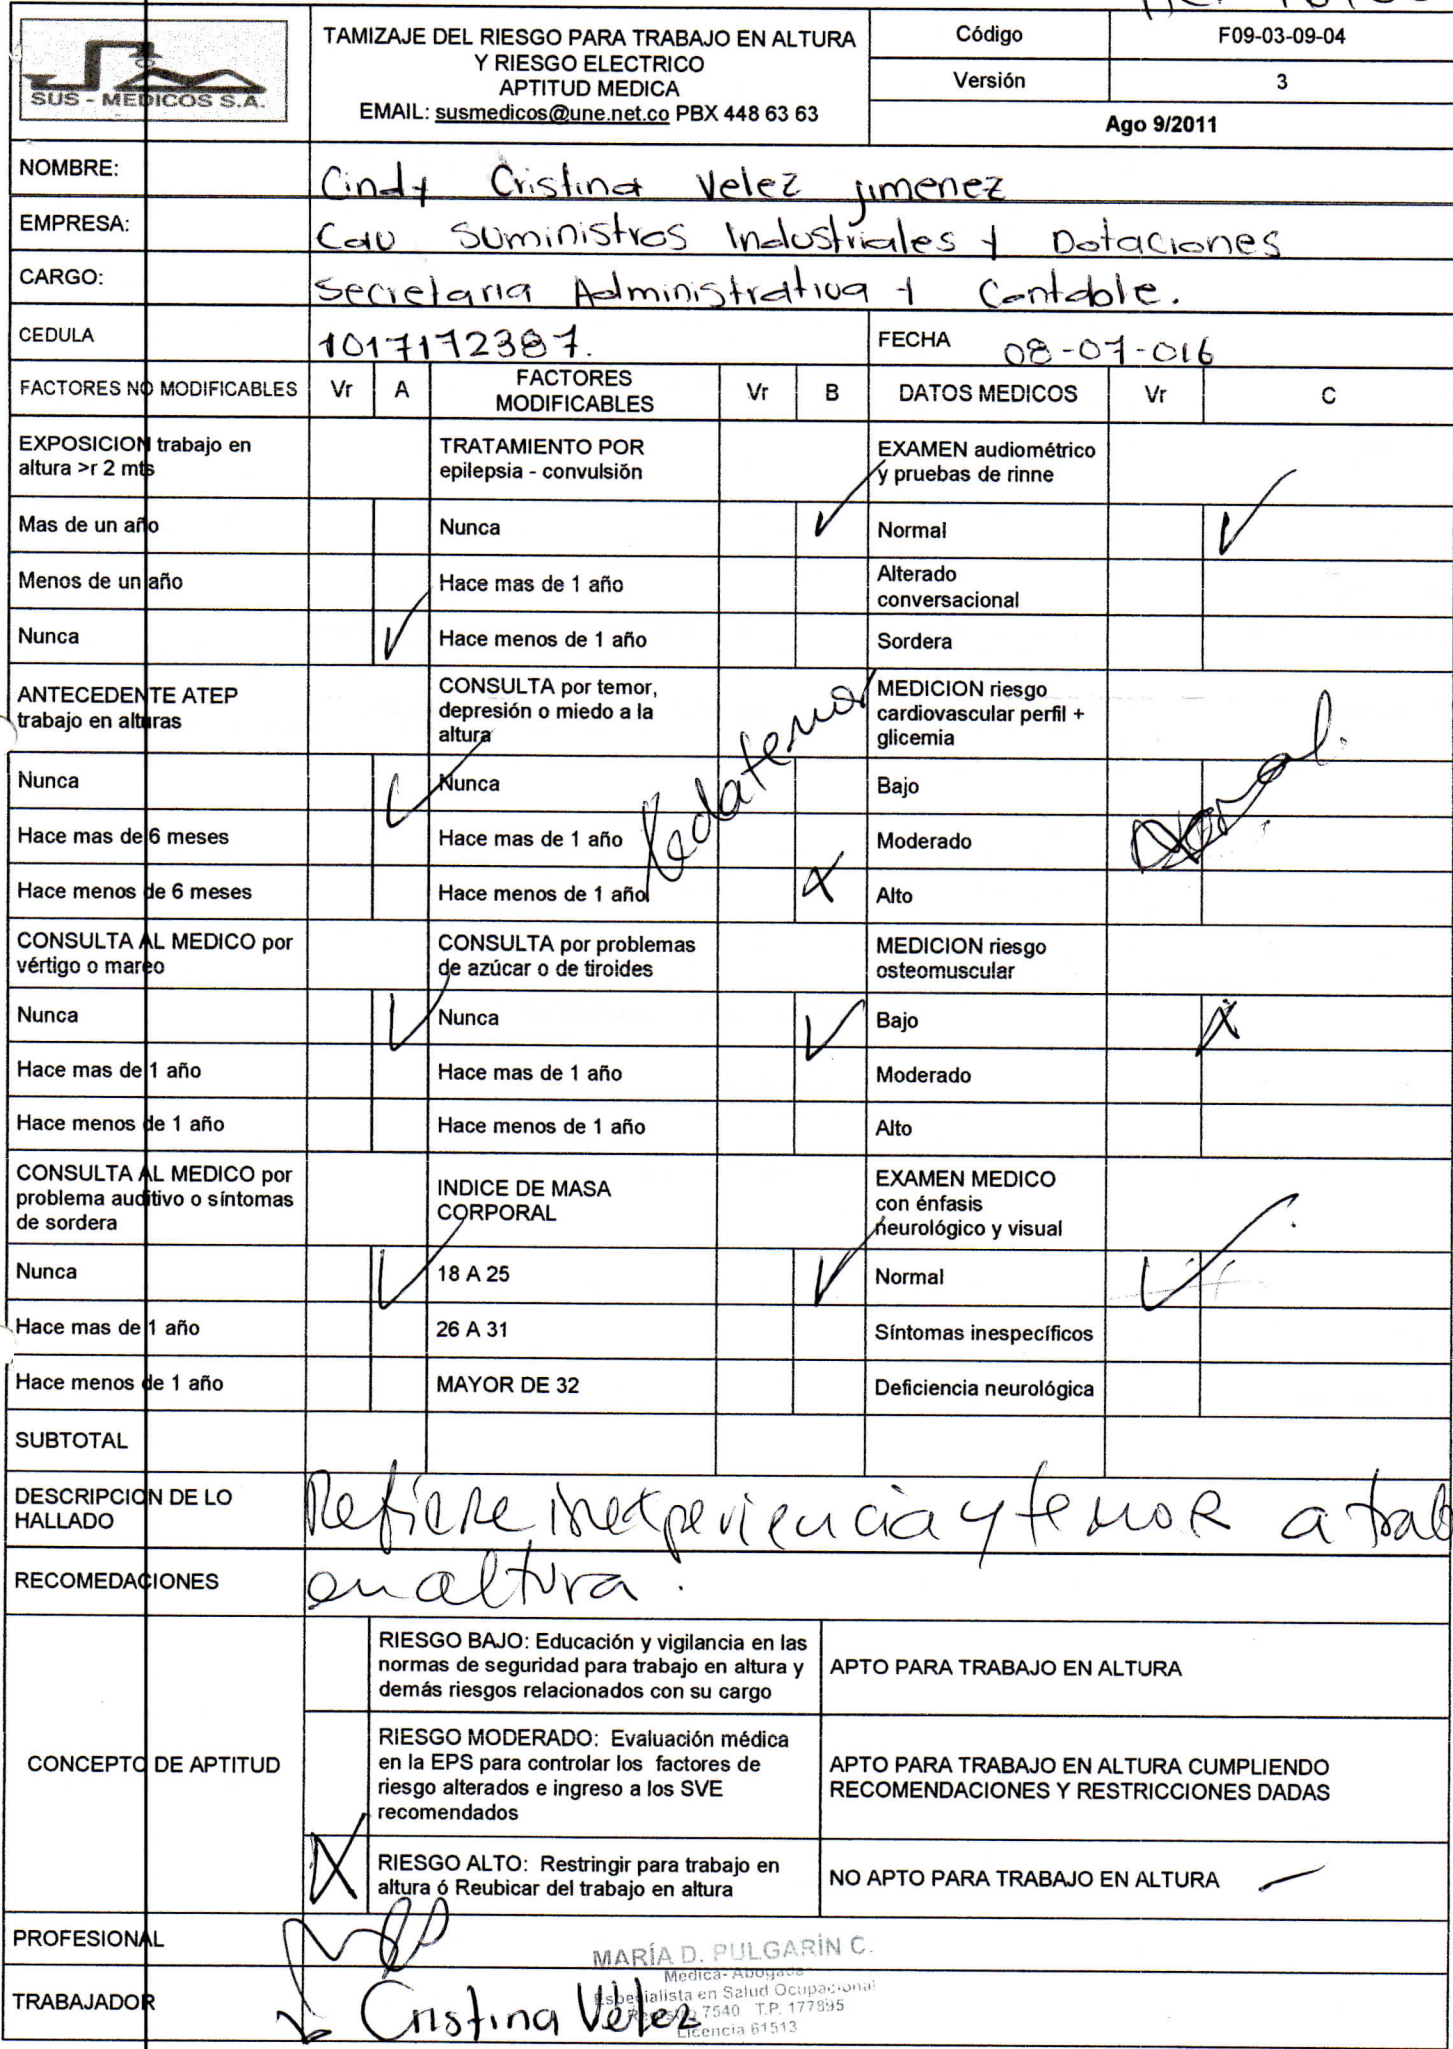 SUS - MEDICOS S.A.
TAMIZAJE DEL RIESGO PARA TRABAJO EN ALTURA
Y RIESGO ELECTRICO
APTITUD MEDICA
EMAIL: susmedicos@une.net.co PBX 448 63 63
Código F09-03-09-04
Versión 3
Ago 9/2011
NOMBRE: Cindy Cristina Velez jimenez
EMPRESA: Cau Suministros Industriales y Dotaciones
CARGO: Secretaria Administrativa y Contable.
CEDULA 1017172387. FECHA 08-07-016
FACTORES NO MODIFICABLES Vr A FACTORES MODIFICABLES Vr B DATOS MEDICOS Vr C
EXPOSICION trabajo en altura >r 2 mts TRATAMIENTO POR epilepsia - convulsión EXAMEN audiométrico y pruebas de rinne
Mas de un año Nunca Normal
Menos de un año Hace mas de 1 año Alterado conversacional
Nunca Hace menos de 1 año Sordera
ANTECEDENTE ATEP trabajo en alturas CONSULTA por temor, depresión o miedo a la altura MEDICION riesgo cardiovascular perfil + glicemia
Nunca Nunca Bajo
Hace mas de 6 meses Hace mas de 1 año Moderado
Hace menos de 6 meses Hace menos de 1 año X Alto
CONSULTA AL MEDICO por vértigo o mareo CONSULTA por problemas de azúcar o de tiroides MEDICION riesgo osteomuscular
Nunca Nunca Bajo X
Hace mas de 1 año Hace mas de 1 año Moderado
Hace menos de 1 año Hace menos de 1 año Alto
CONSULTA AL MEDICO por problema auditivo o síntomas de sordera INDICE DE MASA CORPORAL EXAMEN MEDICO con énfasis neurológico y visual
Nunca 18 A 25 Normal
Hace mas de 1 año 26 A 31 Síntomas inespecíficos
Hace menos de 1 año MAYOR DE 32 Deficiencia neurológica
SUBTOTAL
DESCRIPCION DE LO HALLADO Refiere inexperiencia y temor a trab
RECOMEDACIONES en altura.
CONCEPTO DE APTITUD
RIESGO BAJO: Educación y vigilancia en las normas de seguridad para trabajo en altura y demás riesgos relacionados con su cargo APTO PARA TRABAJO EN ALTURA
RIESGO MODERADO: Evaluación médica en la EPS para controlar los factores de riesgo alterados e ingreso a los SVE recomendados APTO PARA TRABAJO EN ALTURA CUMPLIENDO RECOMENDACIONES Y RESTRICCIONES DADAS
X RIESGO ALTO: Restringir para trabajo en altura ó Reubicar del trabajo en altura NO APTO PARA TRABAJO EN ALTURA
PROFESIONAL
MARÍA D. PULGARÍN C.
Medica- Abogada
Especialista en Salud Ocupacional
7540 T.P. 177895
Licencia 61513
TRABAJADOR Cristina Vélez